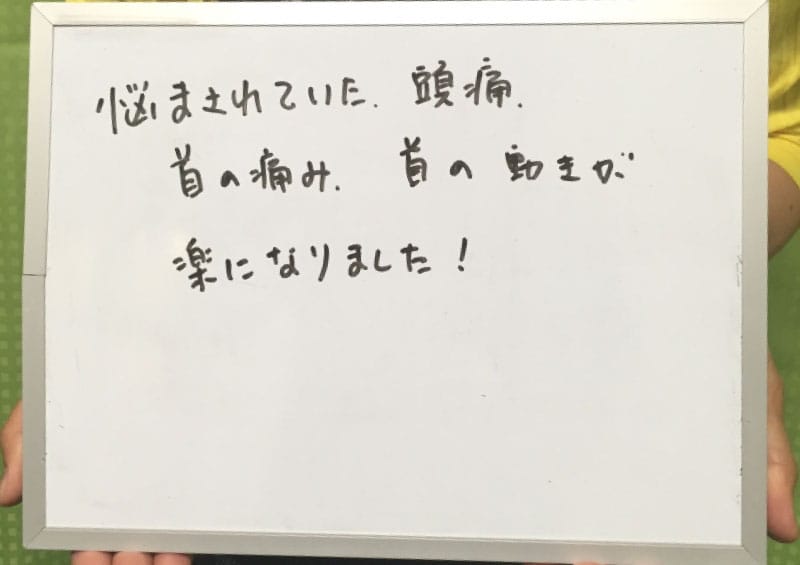 悩まされていた、頭痛、
首の痛み、首の動きが
楽になりました!